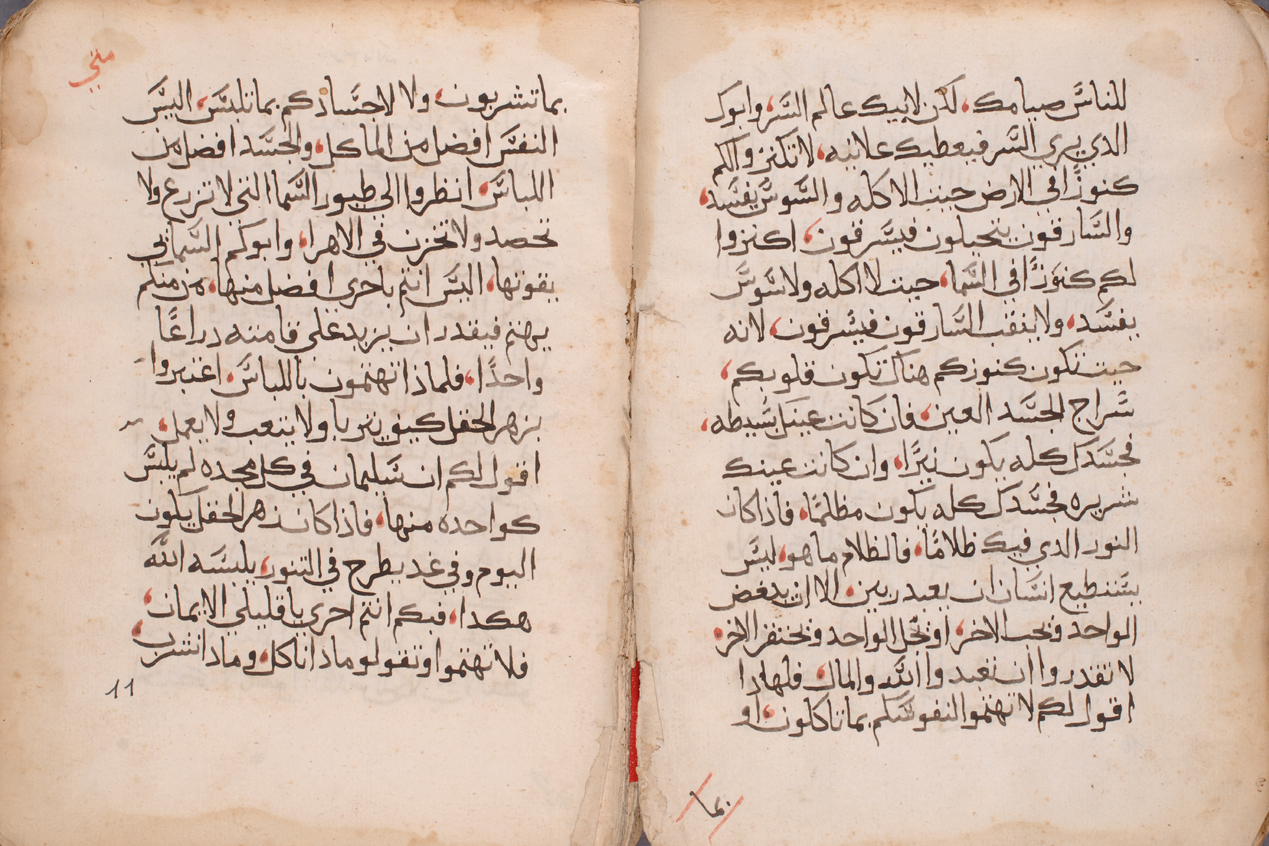 للناس صيامك، لكن لابيك عالم السر، وابوك
الذي يري السر فيعطيك علانيه، لا تكنزوا لكم
كنوزًا في الارض حيث الاكله والسوس يفسد،
والسارقون يتحيلون فيسرقون، اكنزوا
لكم كنوزًا في السما، حيث لا اكله ولا سوس
يفسد، ولا ينقب السارقون فيسرقون، لانه
حيث تكون كنوزكم هناك تكون قلوبكم،
سراج الجسد العين، فان كانت عينك بسيطه،
فجسدك كله يكون نيرًا، وان كانت عينك
شريره فجسدك كله يكون مظلمًا، فاذا كان
النور الذي فيك ظلامًا، فالظلام ما هو، ليس
يستطيع انسان ان يعبد ربين، الا ان يبغض
الواحد ويحب الاخر، او يجل الواحد ويحتقر الاخر،
لا تقدروا ان تعبدوا الله والمال، فلهادا
اقول لكم لا تهتموا لنفوسكم بما تاكلون، او
بما
متي
بما تشربون، ولا لاجسادكم بما تلبس، اليس
النفس افضل من الماكل، والجسد افضل من
اللباس، انظروا الي طيور السما التي لا تزرع ولا
تحصد ولا تخزن في الاهرا، وابوكم السماني
يقوتها، اليس انتم باحري افضل منها، من منكم
يهتم فيقدر ان يزيد علي قامته دراعًا
واحدًا، فلماذا تهتمون باللباس، اعتبروا
بزهر الحقل كيف يتربا ولا يتعب ولا يعمل،
اقول لكم ان سليمان في كل مجده لم يلبس
كواحده منها، فاذا كان زهر الحقل يكون
اليوم وفي غد يطرح في التنور، يلبسه الله
هكدا، فبكم انتم احري يا قليلي الايمان،
فلا تهتموا وتقولو ماذا ناكل، وماذا نشرب،
11